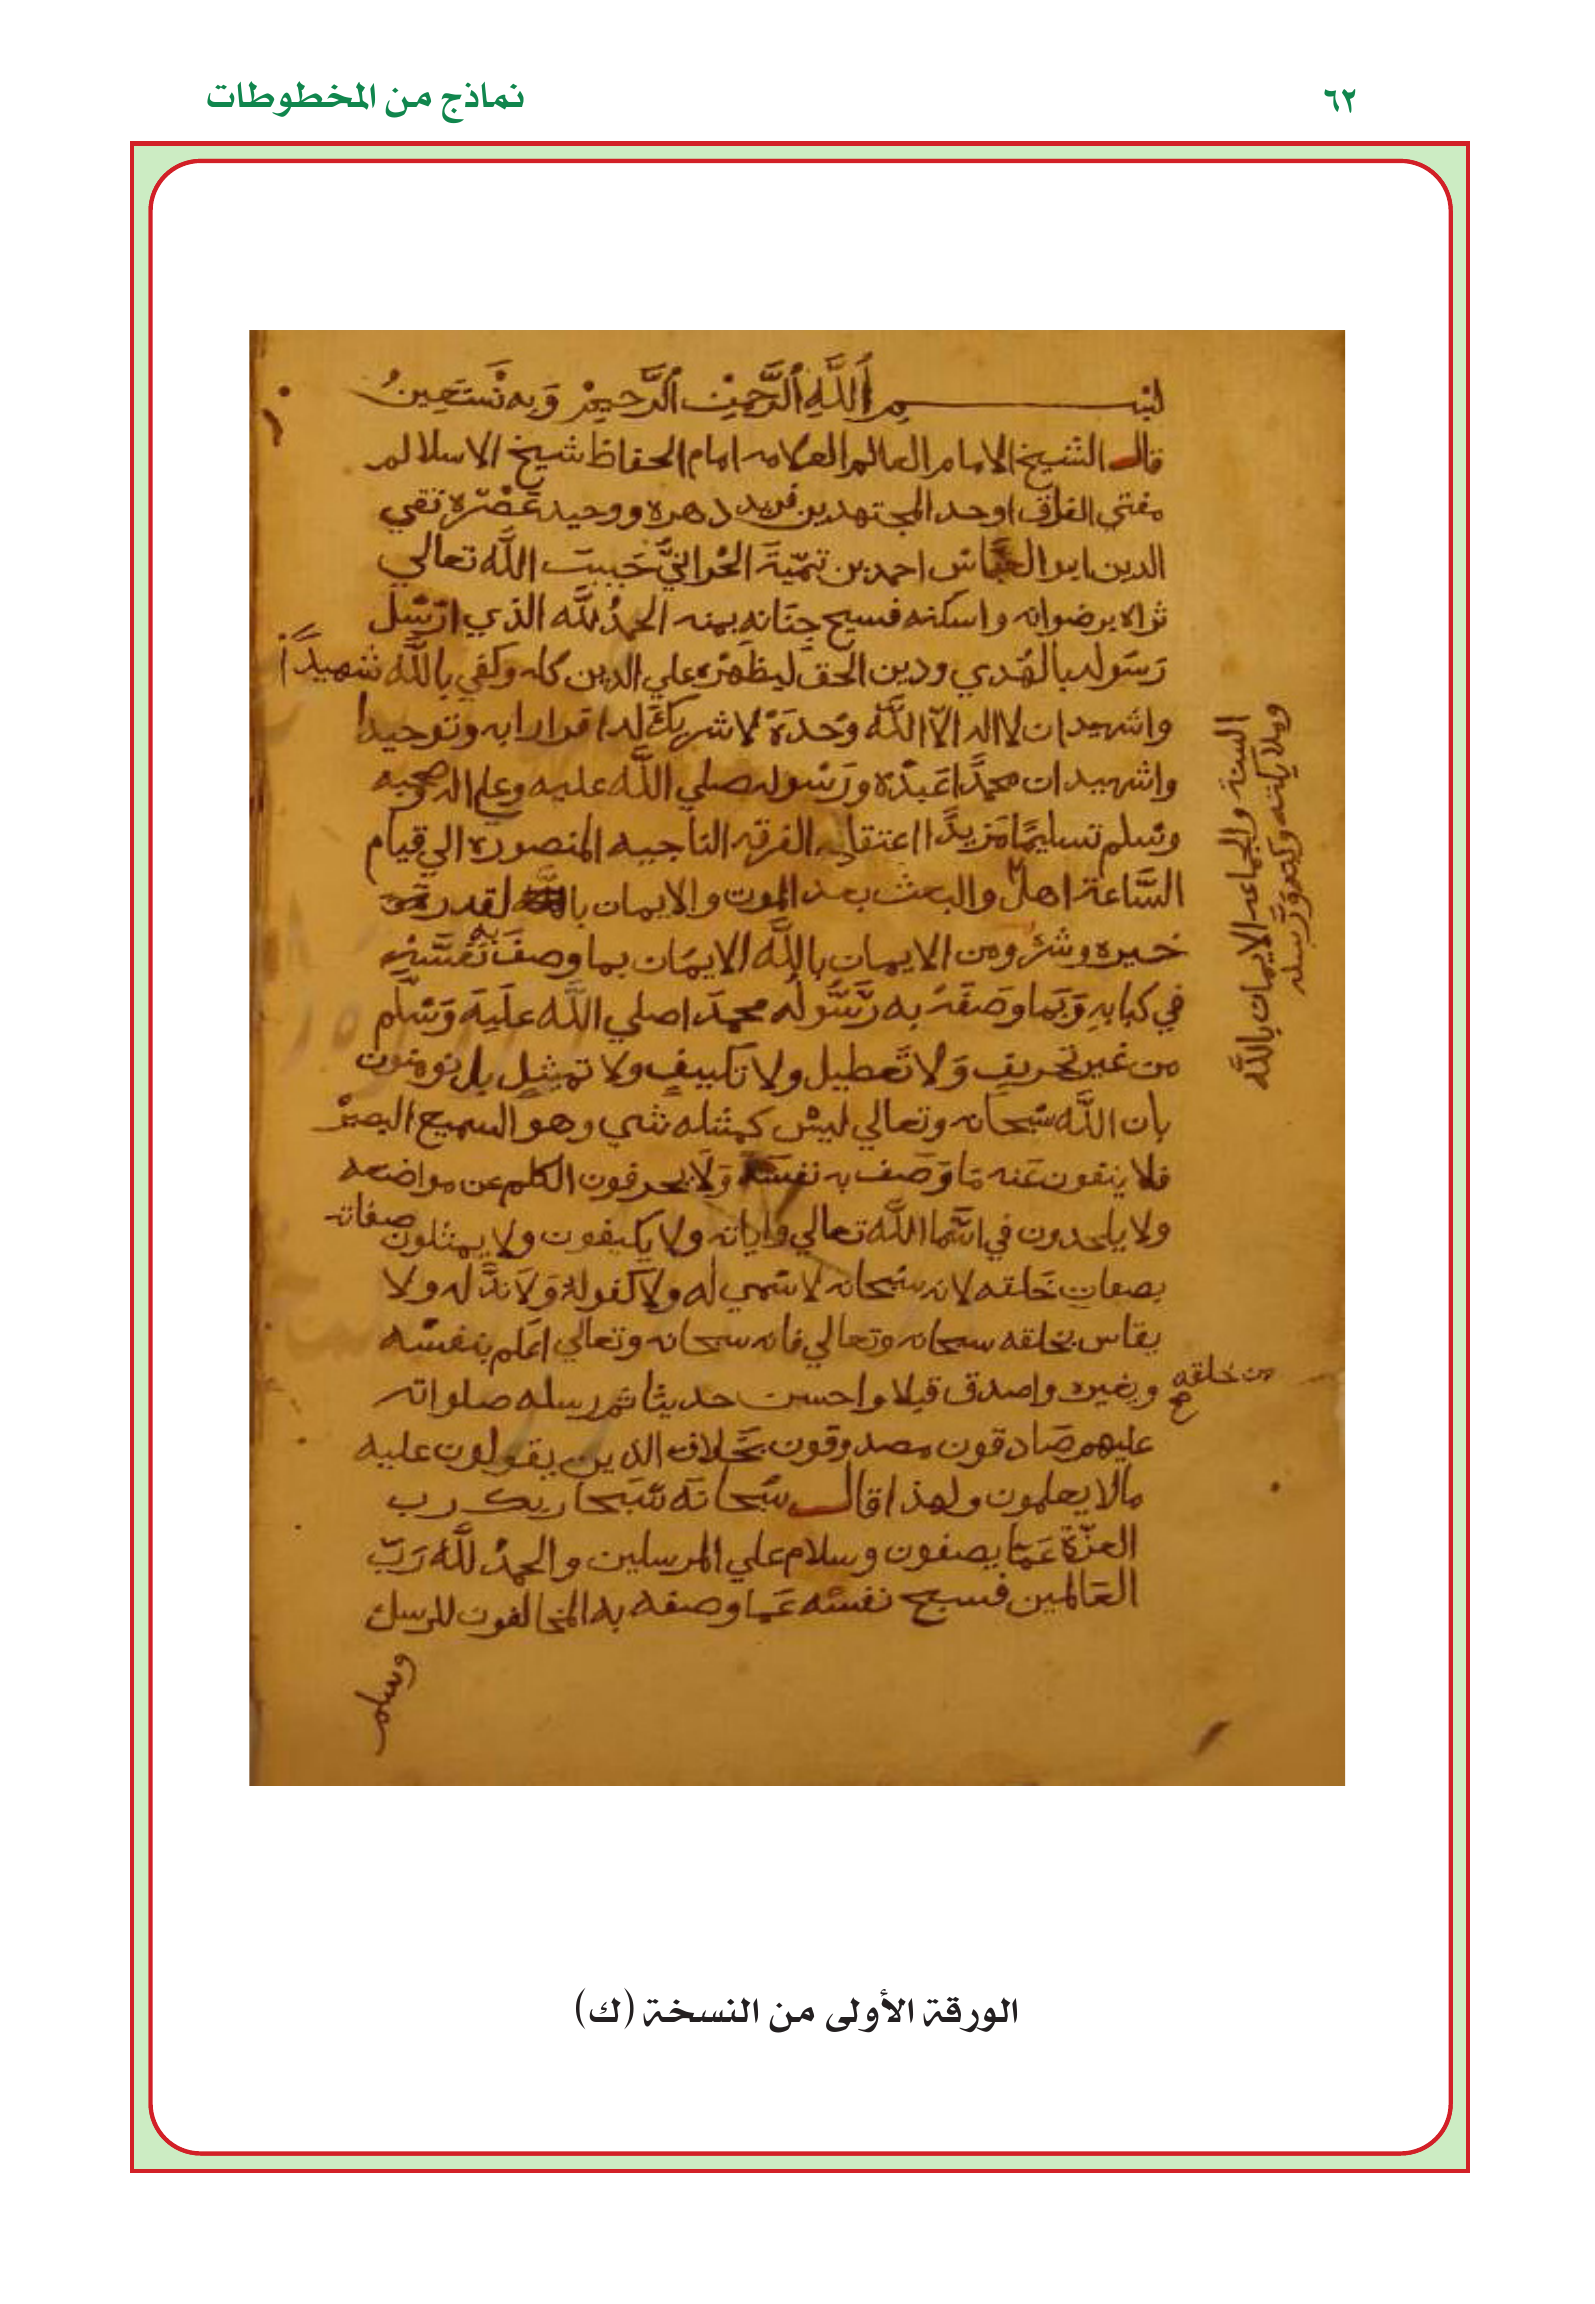 ٦٢
نماذج من المخطوطات
بسم اللَّهِ الرَّحمن الرَّحيمْ وَبه نَستَعِينُ
قال الشيخ الامام العالم العلامه امام الحفاظ شيخ الاسلام
مفتي الفرق اوحد المجتهدين فريد دهره ووحيد عَصْره تقي
الدين ابو العباس احمد بن تيميّة الحراني الله تعالي
ثراه برضوانه واسكنه فسيح جنانه بمنه الحمدُ للَّه الذي ارسَل
رَسوله بالهُدي ودين الحق ليظهره علي الدين كله وكفي باللَّه شهيدَّاً
واشهد ان لا اله الاّ اللَّه وَحدَهُ لا شريكَ له اقرارا به وتوحيدا
واشهد ان محمدًا عَبدُه ورَسُوله صلي اللَّه عليه وعلي اله وصحبه
وسلم تسليمًا مَزيدًا اعتقاد الفرقه الناجيه المنصوره الي قيام
السَّاعة اهل والبعث بعد الموت والايمان بالقدر
خيره وشره ومن الايمان باللَّه الايمَان بما وصفَ به نَفسَه
في كتابهِ وَبَما وَصَفَهُ به رَسُوله محمدَ اصلي اللَّه علَيهَ وَسَلم
من غير تحريفٍ وَلا تَعطيل ولا تكييفٍ ولا تمثيل بل نومنون
بان اللَّه سُبحانه وتعالي ليسْ كمثله شي وهو السميع البصيرْ
فلا ينفون عَنه مَا وَصَف به نفسَهُ وَلَا يحرفون الكلم عن مواضعه
ولا يلحدون في اسَما اللَّه تعالي واياته ولا يكيفون ولا يمثلون صفاته
بصفاتِ خَلقه لانه سُبحانه لا سَمي له ولا كفو لهُ وَلاَ ندَّ له ولا
يقاس بخلقه سبحانه وتعالي فانه سبحانه وتعالي اعَلم بنفسَه
وبغيره واصدق قيلا واحسن حديثا من خلقه ثم رسله صلواته
عليهم صَادقون مصدوقون بخَلاف الذين يقولون عليه
مالا يعلمون ولهذا قال سُبحانَه سُبَحا ربك رب
العزّة عَمّا يصفون وسلام علي المرسلين والحمدُ للَّه رَبّ
العَالمين فسبح نفسَه عَما وصفه به المخالفون للرسل
وسلم
السنة والجماعه الايمان باللَّه
وملايكته وكتبه ورسله
الورقة الأولى من النسخة (ك)